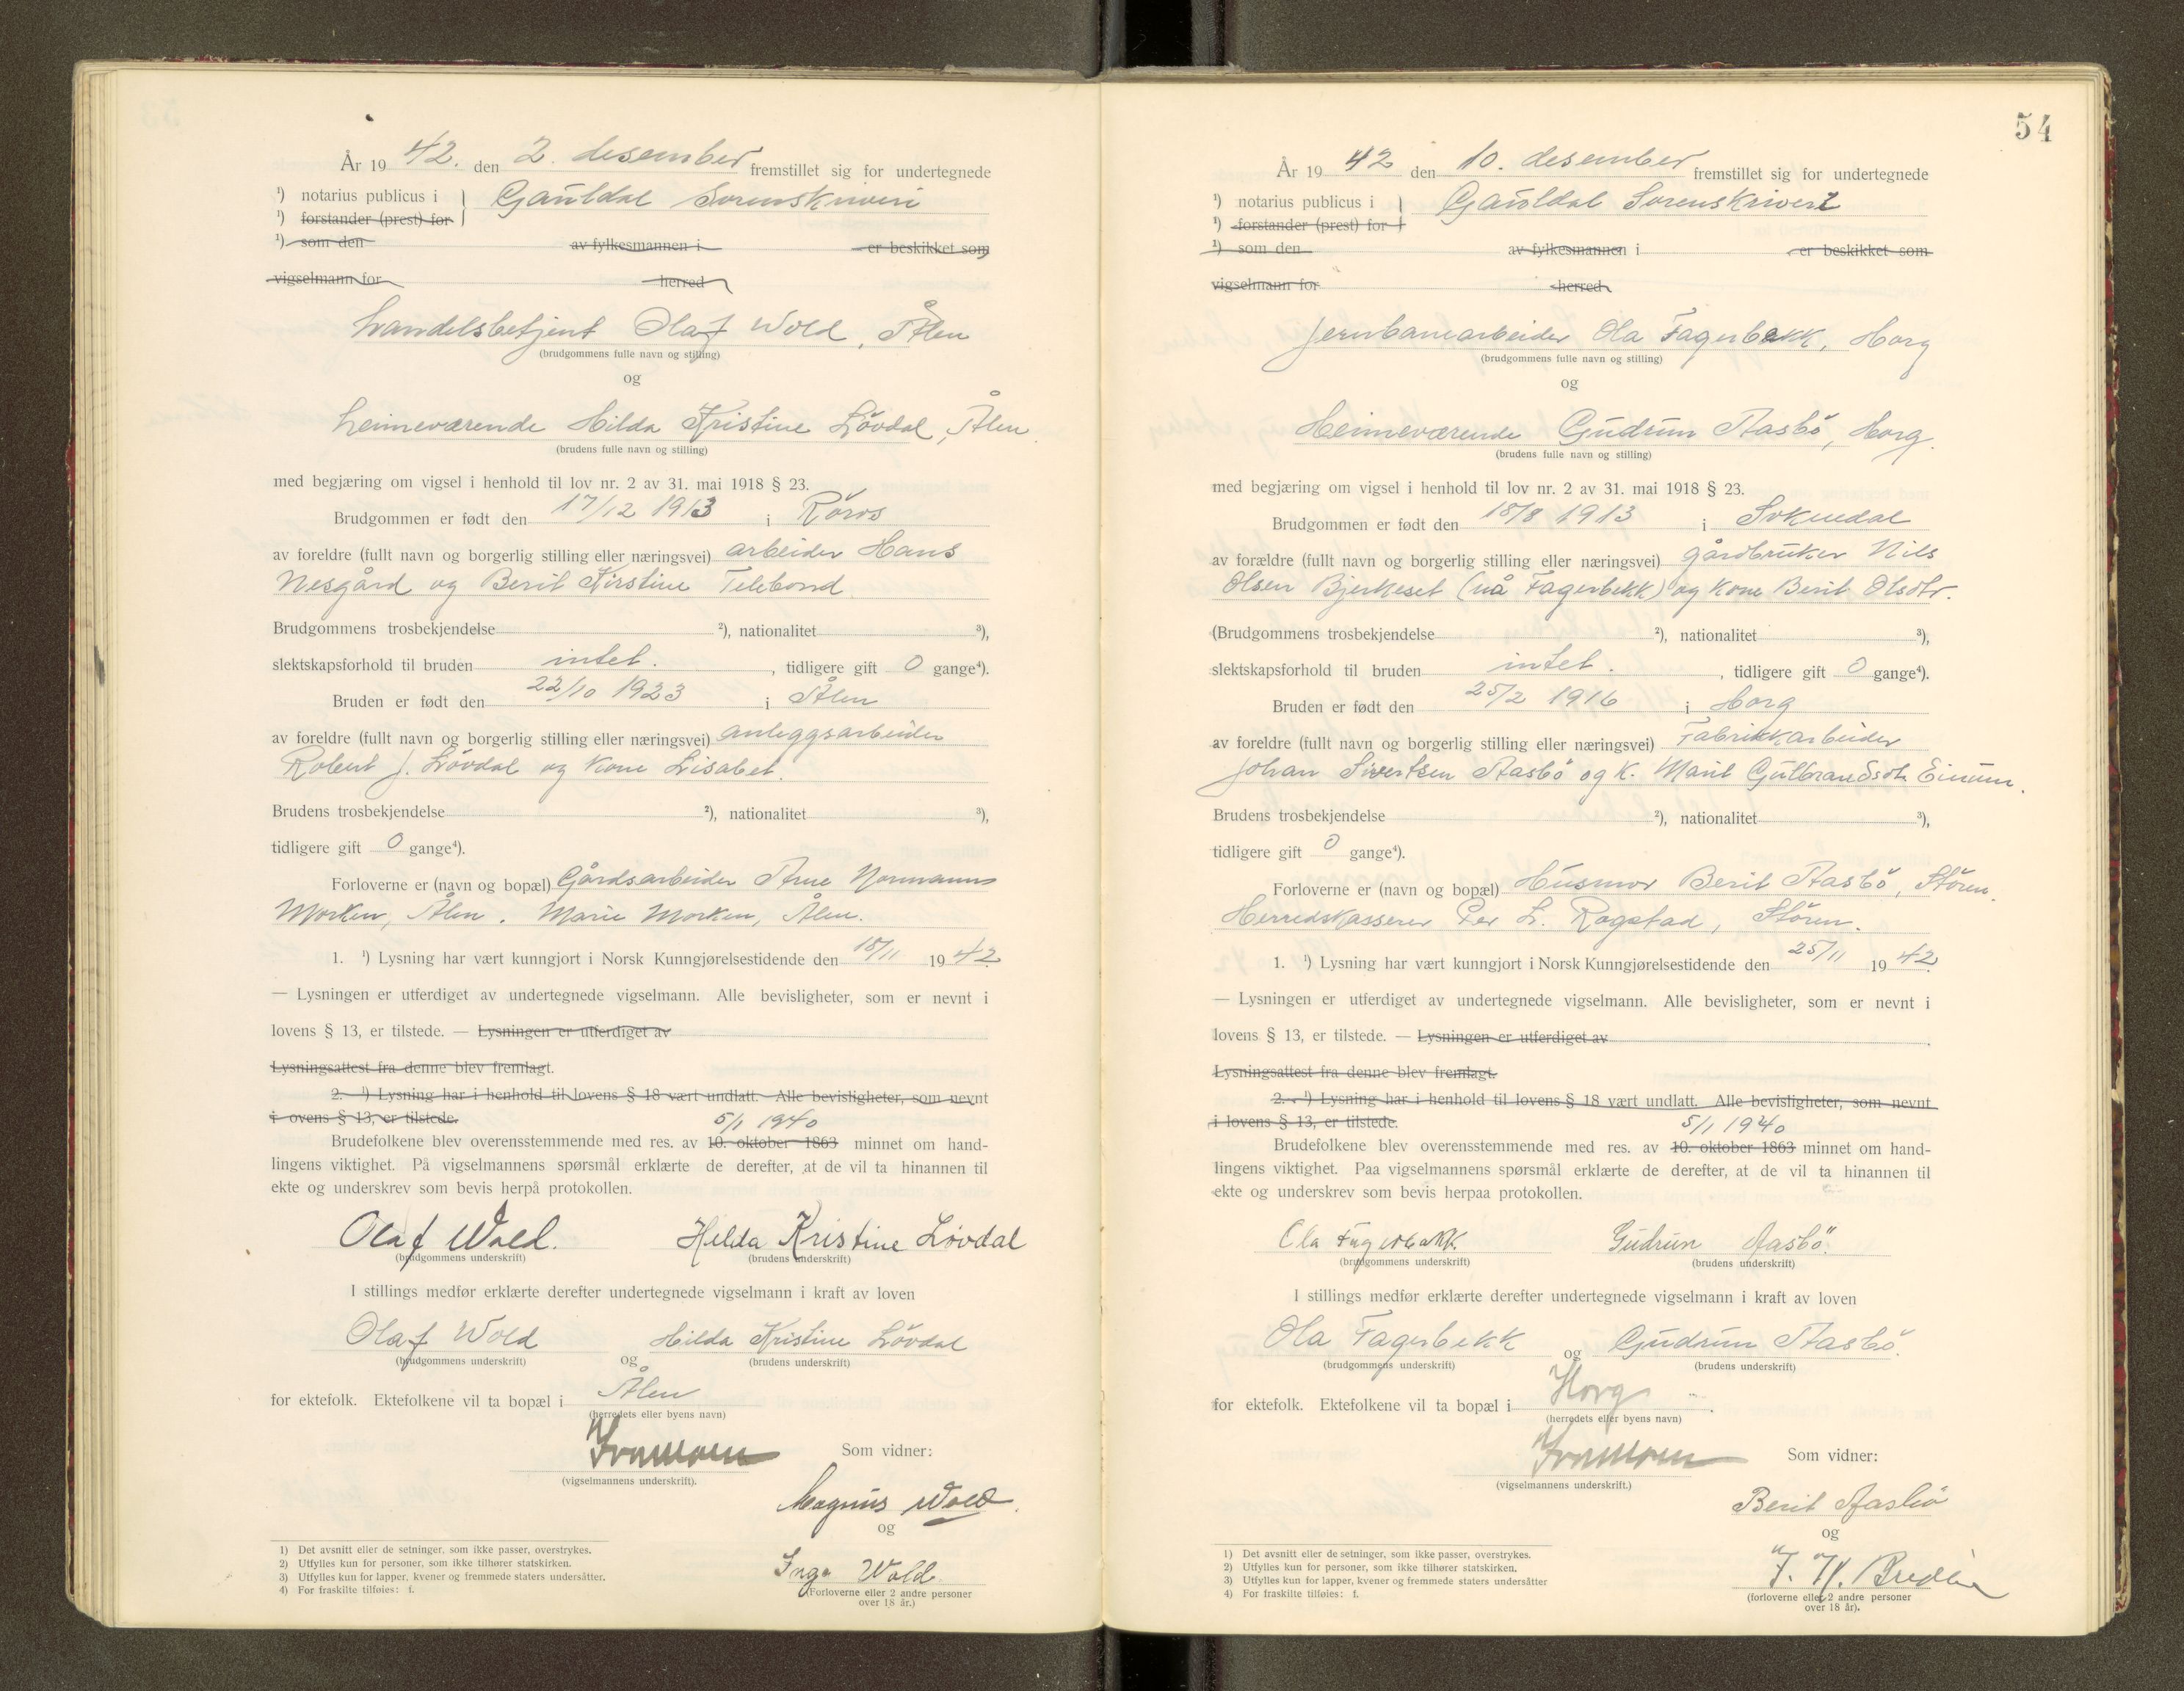 År 19 42. den 2. desember fremstillet sig for undertegnede
¹) notarius publicus i } Gauldal Sorenskriveri
¹) forstander (prest) for
¹) som den av fylkesmannen i er beskikket som
vigselmann for herred
handelsbetjent Olaf Wold, Ålen
(brudgommens fulle navn og stilling)
og
heimeværende Hilda Kristine Lövdal, Ålen.
(brudens fulle navn og stilling)
med begjæring om vigsel i henhold til lov nr. 2 av 31. mai 1918 § 23.
Brudgommen er født den 17/12 1913 i Röros
av foreldre (fullt navn og borgerlig stilling eller næringsvei) arbeider Hans
Nesgård og Berit Kirstine Telebond.
Brudgommens trosbekjendelse ²), nationalitet ³),
slektskapsforhold til bruden intet. , tidligere gift 0 gange⁴).
Bruden er født den 22/10 1923 i Ålen
av foreldre (fullt navn og borgerlig stilling eller næringsvei) anleggsarbeider
Robert J. Lövdal og kone Lisabet.
Brudens trosbekjendelse ²), nationalitet ³),
tidligere gift 0 gange⁴).
Forloverne er (navn og bopæl) Gårdsarbeider Arne Normann
Morken, Ålen. Marie Morken, Ålen.
1. ¹) Lysning har vært kunngjort i Norsk Kunngjørelsestidende den 18/11 19 42.
— Lysningen er utferdiget av undertegnede vigselmann. Alle bevisligheter, som er nevnt i
lovens § 13, er tilstede. — Lysningen er utferdiget av
Lysningsattest fra denne blev fremlagt.
2. ¹) Lysning har i henhold til lovens § 18 vært undlatt. Alle bevisligheter, som nevnt
i ovens § 13, er tilstede.
5/1 1940
Brudefolkene blev overensstemmende med res. av 10. oktober 1863 minnet om hand-
lingens viktighet. På vigselmannens spørsmål erklærte de derefter, at de vil ta hinannen til
ekte og underskrev som bevis herpå protokollen.
Olaf Wold. Hilda Kristine Lövdal
(brudgommens underskrift) (brudens underskrift)
I stillings medfør erklærte derefter undertegnede vigselmann i kraft av loven
Olaf Wold og Hilda Kristine Lövdal
(brudgommens underskrift) (brudens underskrift)
for ektefolk. Ektefolkene vil ta bopæl i Ålen
(herredets eller byens navn)
Som vidner:
(vigselmannens underskrift).
Magnus Wold.
og
Inga Wold
(Forloverne eller 2 andre personer
over 18 år.)
1) Det avsnitt eller de setninger, som ikke passer, overstrykes.
2) Utfylles kun for personer, som ikke tilhører statskirken.
3) Utfylles kun for lapper, kvener og fremmede staters undersåtter.
4) For fraskilte tilføies: f.
54
År 19 42 den 10. desember fremstillet sig for undertegnede
¹) notarius publicus i } Gauldal Sorenskriveri
¹) forstander (prest) for
¹) som den av fylkesmannen i er beskikket som
vigselmann for herred
Jernbanearbeider Ola Fagerbekk, Horg
(brudgommens fulle navn og stilling)
og
Heimeværende Gudrun Aasbö, Horg.
(brudens fulle navn og stilling)
med begjæring om vigsel i henhold til lov nr. 2 av 31. mai 1918 § 23.
Brudgommen er født den 18/8 1913 i Soknedal
av forældre (fullt navn og borgerlig stilling eller næringsvei) gårdbruker Nils
Olsen Bjerkeset (nå Fagerbekk) og kone Berit Olsdtr.
(Brudgommens trosbekjendelse ²), nationalitet ³),
slektskapsforhold til bruden intet. , tidligere gift 0 gange⁴).
Bruden er født den 25/2 1916 i Horg
av foreldre (fullt navn og borgerlig stilling eller næringsvei) Fabrikkarbeider
Johan Sivertsen Aasbö og k. Marit Gulbrandsdt. Einum.
Brudens trosbekjendelse ²), nationalitet ³),
tidligere gift 0 gange⁴).
Forloverne er (navn og bopæl) Husmor Berit Aasbö, Stören.
Herredskasserer Per L. Rogstad, Stören.
1. ¹) Lysning har vært kunngjort i Norsk Kunngjørelsestidende den 25/11 19 42.
— Lysningen er utferdiget av undertegnede vigselmann. Alle bevisligheter, som er nevnt i
lovens § 13, er tilstede. — Lysningen er utferdiget av .
Lysningsattest fra denne blev fremlagt.
2. ¹) Lysning har i henhold til lovens § 18 vært undlatt. Alle bevisligheter, som nevnt
i lovens § 13, er tilstede.
5/1 1940
Brudefolkene blev overensstemmende med res. av 10. oktober 1863 minnet om hand-
lingens viktighet. Paa vigselmannens spørsmål erklærte de derefter, at de vil ta hinannen til
ekte og underskrev som bevis herpaa protokollen.
Ola Fagerbakk. Gudrun Aasbö.
(brudgommens underskrift) (brudens underskrift)
I stillings medfør erklærte derefter undertegnede vigselmann i kraft av loven
Ola Fagerbekk og Gudrun Aasbö.
(brudgommens underskrift) (brudens underskrift)
for ektefolk. Ektefolkene vil ta bopæl i Horg .
(herredets eller byens navn)
Som vidner:
(vigselmannens underskrift.)
Berit Aasbö
og
(forloverne eller 2 andre personer
over 18 år).
1) Det avsnitt eller de setninger, som ikke passer, overstrykes.
2) Utfylles kun for personer, som ikke tilhører statskirken.
3) Utfylles kun for lapper, kvener og fremmede staters undersåtter
4) For fraskilte tilføies: f.